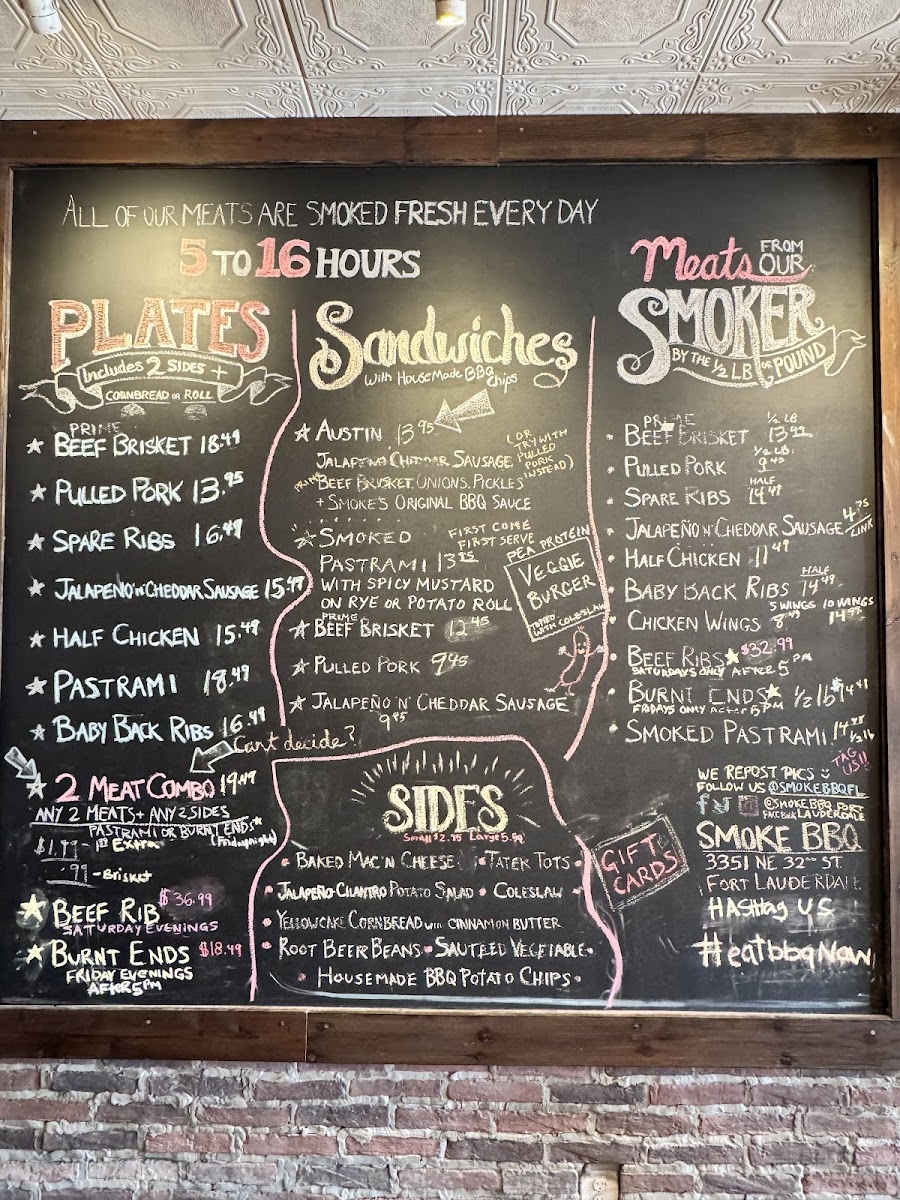 ALL OF OUR MEATS ARE SMOKED FRESH EVERY DAY
5 TO 16 HOURS
PLATES
Includes 2 SIDES +
CORNBREAD OR ROLL
PRIME
★ BEEF BRISKET 18.49
★ PULLED PORK 13.95
★ SPARE RIBS 16.49
★ JALAPENO 'N' CHEDDAR SAUSAGE 15.49
★ HALF CHICKEN 15.49
★ PASTRAMI 18.49
★ BABY BACK RIBS 16.49
Can't decide?
★ 2 MEAT COMBO 19.49
ANY 2 MEATS + ANY 2 SIDES
PASTRAMI OR BURNT ENDS★
(Friday night)
$1.99 - 1st EXTRA
.99 - Brisket
★ BEEF RIB $36.99
SATURDAY EVENINGS
★ BURNT ENDS $18.49
FRIDAY EVENINGS
AFTER 5PM
Sandwiches
With HouseMade BBQ Chips
★ AUSTIN 13.95
JALAPENO CHEDDAR SAUSAGE,
PRIME BEEF BRISKET, ONIONS, PICKLES
+ SMOKE'S ORIGINAL BBQ SAUCE
(OR TRY WITH PULLED PORK INSTEAD)
★ SMOKED
FIRST COME
FIRST SERVE
PASTRAMI 13
WITH SPICY MUSTARD
ON RYE OR POTATO ROLL
PRIME
★ BEEF BRISKET 12.45
★ PULLED PORK 9.45
★ JALAPEÑO 'N' CHEDDAR SAUSAGE
9.85
PEA PROTEIN
VEGGIE
BURGER
TOPPED
WITH COLESLAW
SIDES
Small $2.75 Large 5.50
• BAKED MAC 'N CHEESE • TATER TOTS •
JALAPEÑO-CILANTRO POTATO SALAD • COLESLAW
• YELLOWCAKE CORNBREAD WITH CINNAMON BUTTER
• ROOT BEER BEANS • SAUTEED VEGETABLE •
• HOUSEMADE BBQ POTATO CHIPS •
GIFT
CARDS
Meats FROM OUR
SMOKER
BY THE 1/2 LB OR POUND
PRIME
• BEEF BRISKET 1/2 LB
• PULLED PORK 1/2 LB. 9.45
• SPARE RIBS HALF 14.49
• JALAPEÑO N' CHEDDAR SAUSAGE 4.75 / LINK
• HALF CHICKEN 11.49
• BABY BACK RIBS HALF 14.49
• CHICKEN WINGS 5 WINGS 8.49 10 WINGS 14.99
• BEEF RIBS★ $32.99
SATURDAYS ONLY AFTER 5PM
• BURNT ENDS★ 1/2 lb $14.49
FRIDAYS ONLY AFTER 5PM
• SMOKED PASTRAMI 14.25 1/2 lb
TAG US!!
WE REPOST PICS
FOLLOW US @SMOKEBBQFL
@SMOKE BBQ FORT
FACEBook LAUDERDALE
SMOKE BBQ
3351 NE 32ND ST
FORT LAUDERDALE
HASHtag US
#eatbbqNow